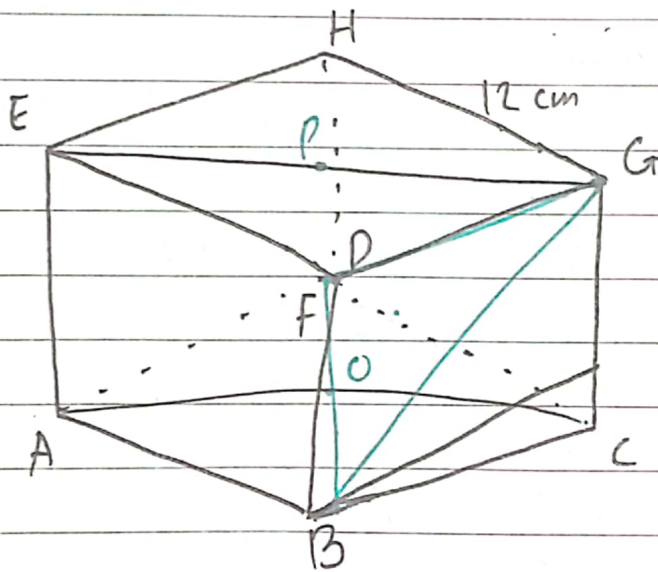 H
12 cm
E
P
G
D
F
O
A
C
B